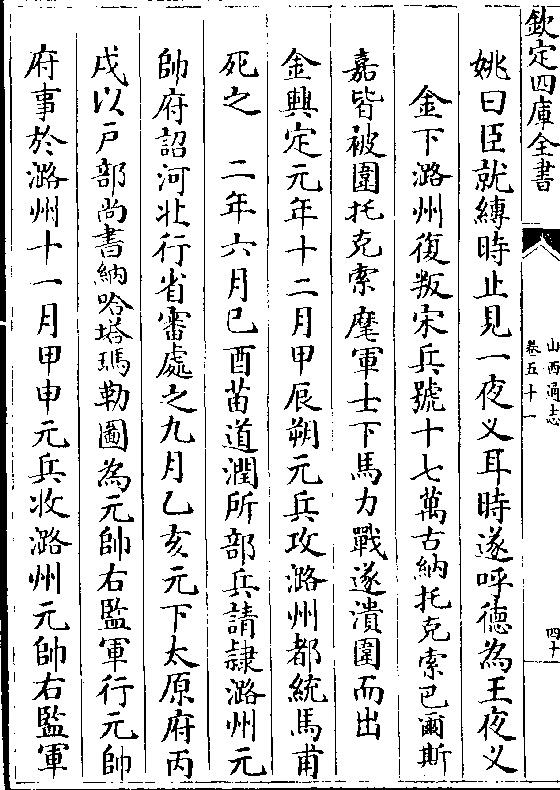 欽定四庫全書
山西通志
卷五十一
四十
姚曰臣就縛時止見一夜义耳時遂呼德為王夜义
金下潞州復叛宋兵號十七萬古納托克索巴爾斯
嘉皆被圍托克索麾軍士下馬力戰遂潰圍而出
金興定元年十二月甲辰朔元兵攻潞州都統馬甫
死之　二年六月已酉苗道潤所部兵請隸潞州元
帥府詔河北行省審處之九月乙亥元下太原府丙
戌以戸部尚書納哈塔瑪勒圖為元帥右監軍行元帥
府事於潞州十一月甲申元兵收潞州元帥右監軍